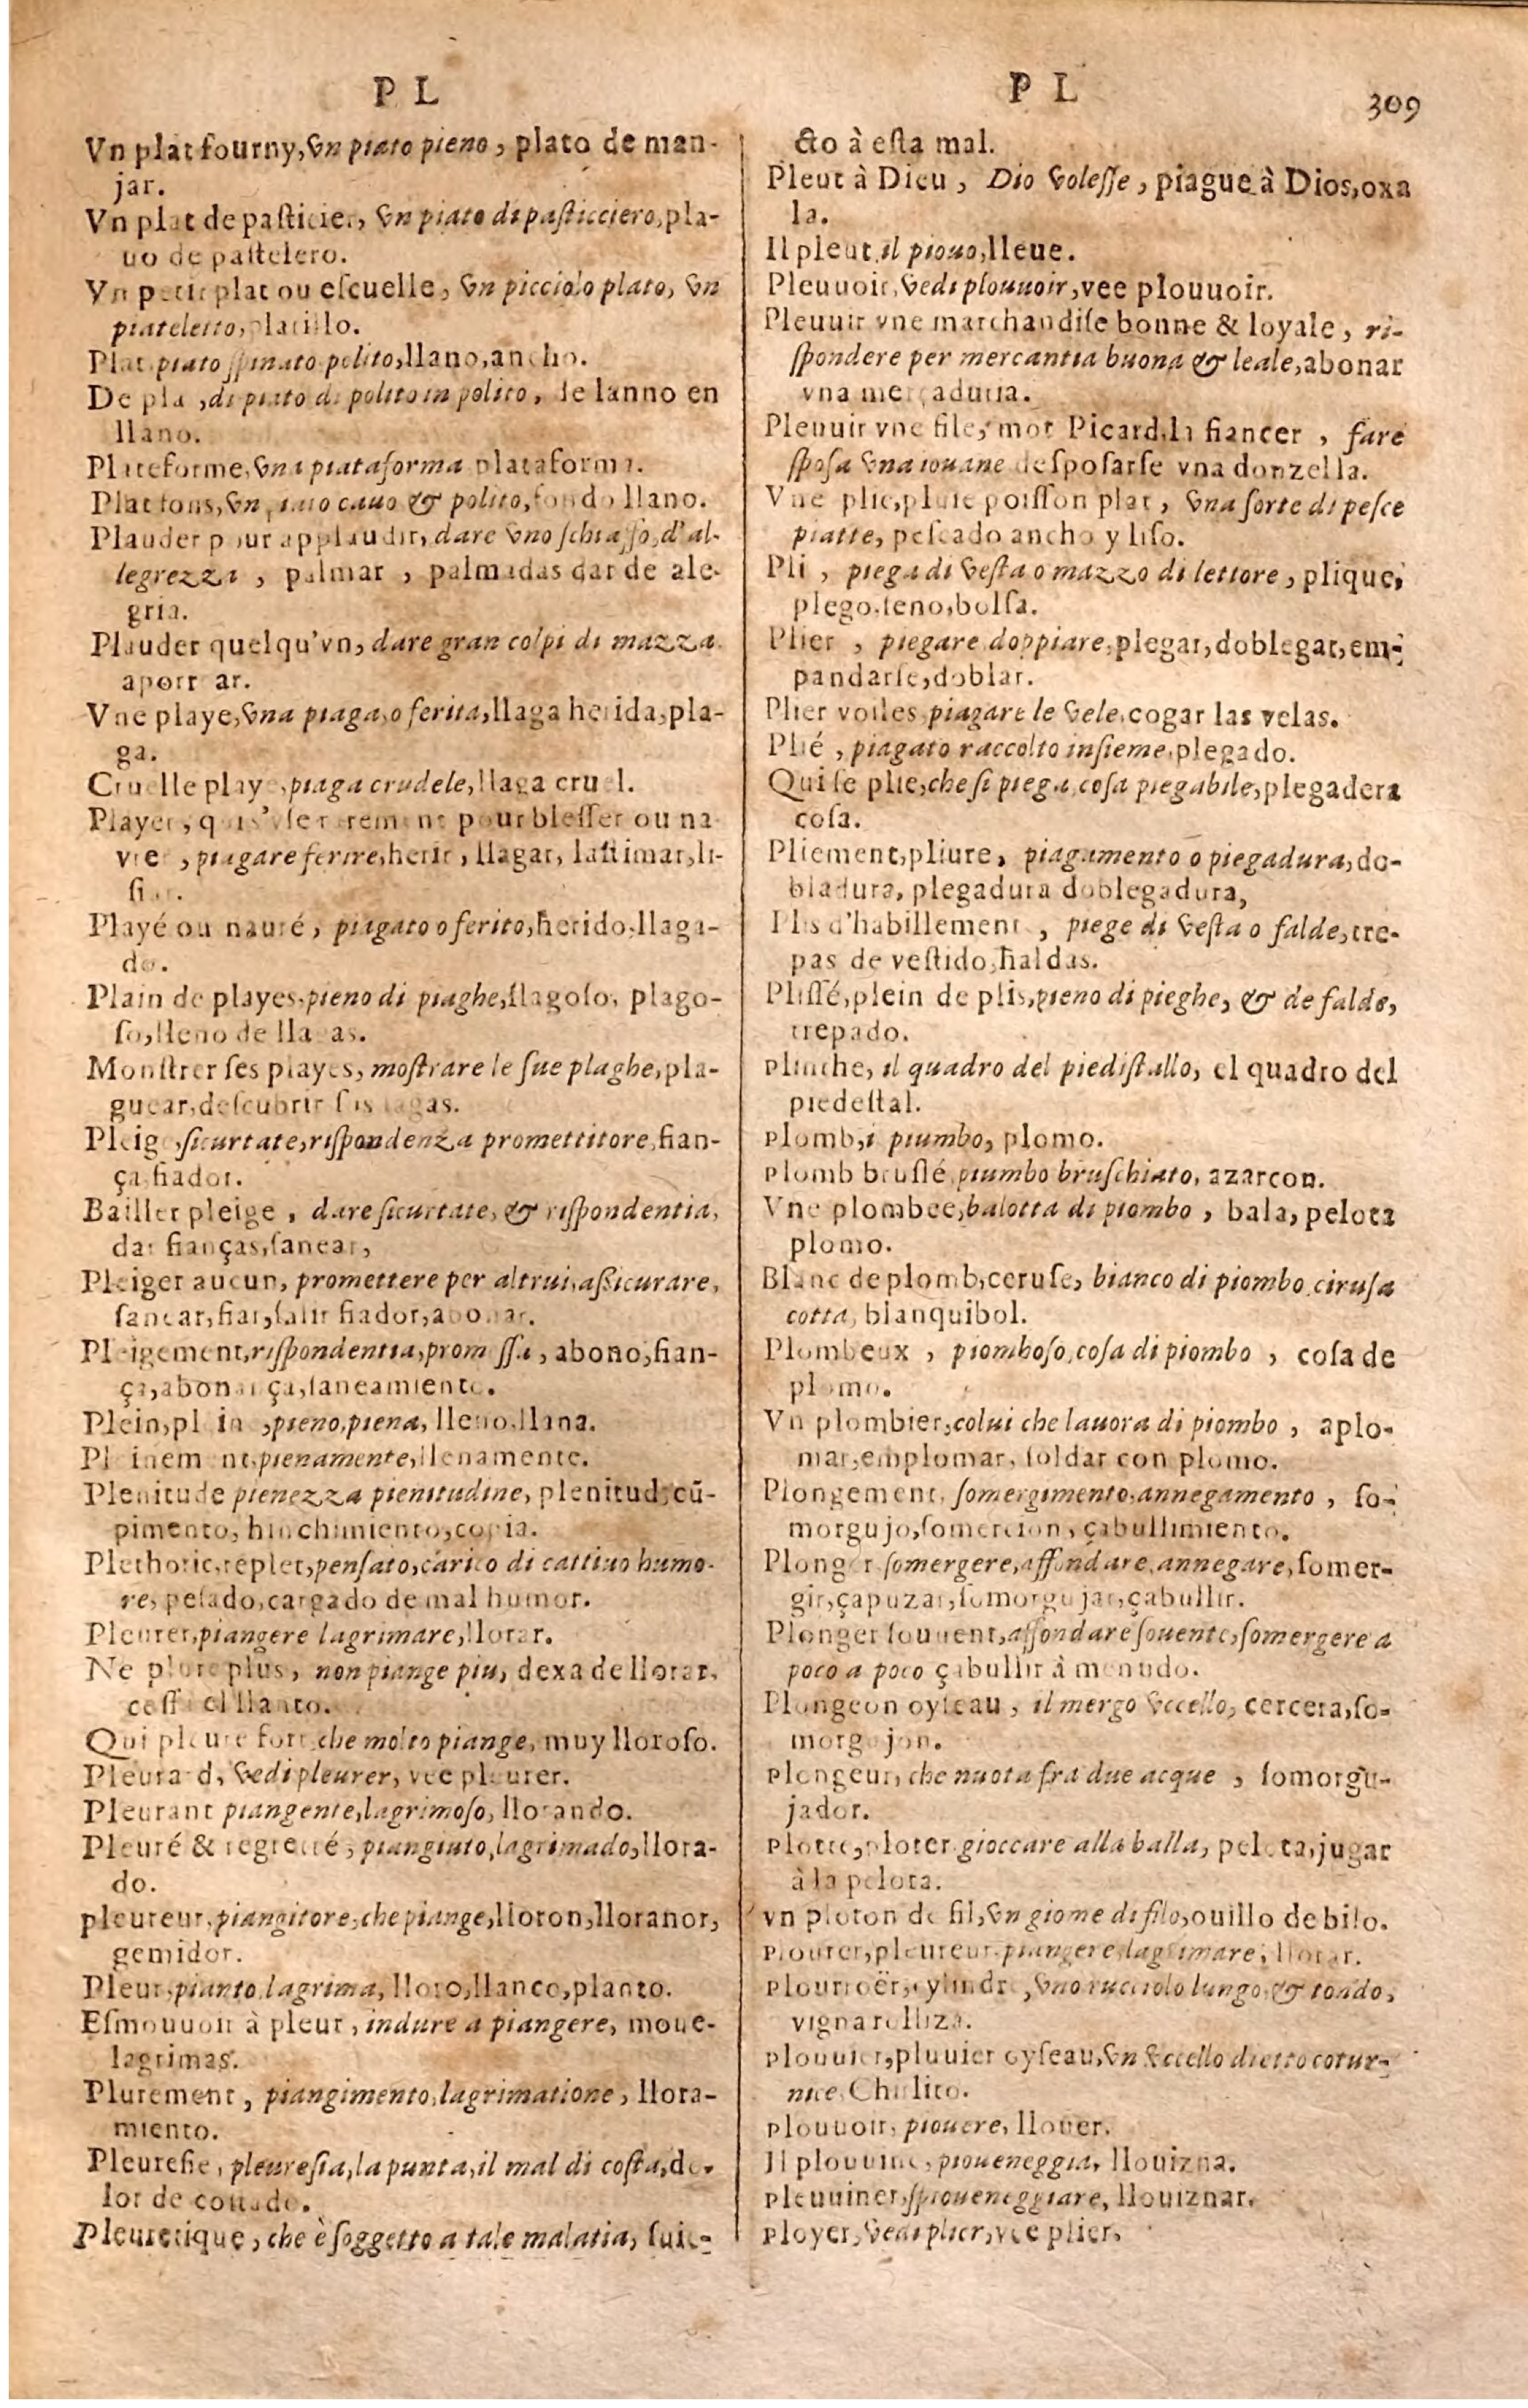 P L
Vn plat fourny, vn piato pieno, plato de man-
jar.
Vn plat de pasticier, vn piato di pasticciero, pla-
uo de pastelero.
Vn petit plat ou escuelle, vn picciolo plato, vn
piateletto, platillo.
Plat piato spinato polito, llano, ancho.
De pla , di piato di polito in polito, de lanno en
llano.
Plateforme, vna piataforma plataforma.
Plat fons, vn piato cauo & polito, fondo llano.
Plauder pour applaudir, dare vno schiaffo, d'al-
legrezza , palmar , palmadas dar de ale-
gria.
Plauder quelqu'vn, dare gran colpi di mazza.
aporrear.
Vne playe, vna piaga, o ferita, llaga herida, pla-
ga.
Cruelle playe, piaga crudele, llaga cruel.
Player, qui s'vse rarement pour blesser ou na
vrer , piagare ferire, herir, llagar, lastimar, li-
siar.
Playé ou nauré, piagato o ferito, herido, llaga-
do.
Plain de playes, pieno di piaghe, llagoso, plago-
so, lleno de llagas.
Monstrer ses playes, mostrare le sue plaghe, pla-
guear, descubrir sus lagas.
Pleige, sicurtate, rispondenza promettitore, fian-
ça, fiador.
Bailler pleige , dare sicurtate, & rispondentia,
dar fianças, sanear,
Pleiger aucun, promettere per altrui, assicurare,
sanear, fiar, salir fiador, abonar.
Pleigement, rispondentia, promessa, abono, fian-
ça, abonança, saneamiento.
Plein, plein , pieno, piena, lleno, llana.
Pleinement, pienamente, llenamente.
Plenitude pienezza pienitudine, plenitud, cũ-
pimento, hinchimiento, copia.
Plethoric, replet, pensato, carico di cattiuo humo-
re, pesado, cargado de mal humor.
Pleurer, piangere lagrimare, llorar.
Ne plore plus, non piange piu, dexa de llorar,
cessa el llanto.
Qui pleure fort, che molto piange, muy lloroso.
Pleurard, vedi pleurer, vee pleurer.
Pleurant piangente, lagrimoso, llorando.
Pleuré & regretté, piangiuto, lagrimado, llora-
do.
pleureur, piangitore, che piange, lloron, lloranor,
gemidor.
Pleur, pianto, lagrima, lloro, llanco, planto.
Esmouuoir à pleur, indure a piangere, moue-
lagrimas.
Plurement , piangimento, lagrimatione, llora-
miento.
Pleuresie, pleuresia, la punta, il mal di costa, do-
lor de costado.
Pleuretique, che è soggetto a tale malatia, suie-
P L
309
cto à esta mal.
Pleut à Dieu , Dio volesse , piague à Dios, oxa
la.
Il pleut, il piouo, lleue.
Pleuuoir, vedi plouuoir, vee plouuoir.
Pleuuir vne marchandise bonne & loyale , ri-
spondere per mercantia buona & leale, abonar
vna mercaduria.
Pleuuir vne file, mot Picard, la fiancer , fare
sposa vna iouane desposarse vna donzella.
Vne plie, pluie poisson plat , vna sorte di pesce
piatte, pescado ancho y liso.
Pli , piega di vesta o mazzo di lettore , plique,
plego, seno, bolsa.
Plier , piegare doppiare, plegar, doblegar, em-
pandarse, doblar.
Plier voiles piagare le vele, cogar las velas.
Plié , piagato raccolto insieme, plegado.
Qui se plie, che si piega, cosa piegabile, plegadera
cosa.
Pliement, pliure, piagamento o piegadura, do-
bladura, plegadura doblegadura,
Plis d'habillement , piege di vesta o falde, tre-
pas de vestido, haldas.
Plissé, plein de plis, pieno di pieghe, & de falde,
trepado.
plinthe, il quadro del piedistallo, el quadro del
piedestal.
plomb, i piumbo, plomo.
plomb bruslé, piumbo bruschiato, azarcon.
Vne plombee, balotta di piombo , bala, pelota
plomo.
Blanc de plomb, ceruse, bianco di piombo, cirusa
cotta, blanquibol.
Plombeux , piomboso, cosa di piombo , cosa de
plomo.
Vn plombier, colui che lauora di piombo , aplo-
mar, emplomar, soldar con plomo.
Plongement, somergimento, annegamento , so-
morgujo, somercion, çabullimiento.
Plonger somergere, affondare, annegare, somer-
gir, çapuzar, somorgujar, çabullir.
Plonger souuent, affondare souente, somergere a
poco a poco çabullir à menudo.
Plongeon oyseau , il mergo vccello, cercera, so-
morgujon.
plongeur, che nuota fra due acque , somorgu-
jador.
plotte, ploter gioccare alla balla, pelota, jugar
à la pelota.
vn ploton de fil, vn giome di filo, ouillo de hilo.
plourer, pleureur, piangere lagrimare, llorar.
plourroër, cylindre, vno rucciolo lungo, & tondo,
vigna rolliza.
plouuier, pluuier oyseau, vn vccello dietto cotur-
nice, Chirlito.
plouuoir, piouere, llouer.
Il plouuine, pioueneggia, llouizna.
pleuuiner, spioueneggiare, llouiznar.
ployer, vedi plier, vee plier.